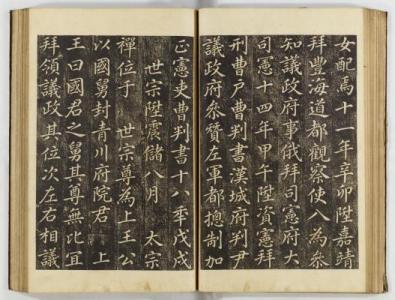 女配焉十一年辛卯陞嘉靖
拜豐海道都觀察使入為參
知議政府事俄拜司憲府大
司憲十四年甲午陞資憲拜
刑曹戶曹判書漢城府判尹
議政府參贊左軍都摠制加
正憲吏曹判書十八年戊戌
世宗陞虞儲八月 太宗
禪位于 世宗尊為上王公
以國舅封青川府院君 上
王曰國君之舅其尊無比宜
拜領議政其位次左右相議